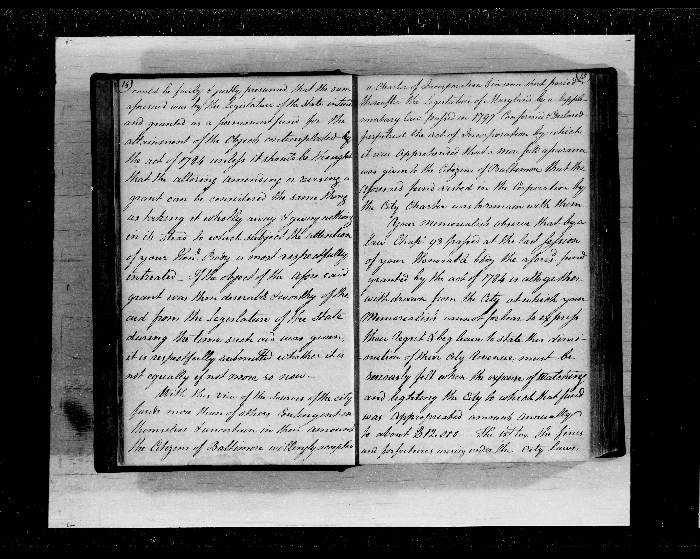 18)
could be fairly & justly presumed that the sum
aforesaid was by the Legislature of the State intended
and granted as a permanent fund for the
attainment of the Objects contemplated by
the act of 1784 unless it should be thought
that the altering amending or revising a
grant can be considered the same thing
as taking it wholly away & giving nothing
in its stead to which subject the attention
of your Honl. Body is most respectfully
intreated — If the object of the afore said
grant was then desirable & worthy of the
aid from the Legislature of the State
during the time such aid was given,
it is respectfully submitted whether it is
not equally if not more so now.
With this view of the Sources of the city
funds more than of others contingent in
themselves & uncertain in their amount
the Citizens of Baltimore willingly accepted
a Charter of Incorporation & in some short period
thereafter the Legislature of Maryland by a Supple
mentary law passed in 1797 Confirmed & declared
perpetual the act of Incorporation by which
it was apprehended that a more full assurance
was given to the Citizens of Baltimore that the
aforesaid fund vested in the Corporation by
the City Charter was to remain with them
Your Memorialists observe that by a
law Chapr 93 passed at the last session
of your Honorable body the aforesd. fund
granted by the act of 1784 is altogether
withdrawn from the City at which your
Memorialists cannot forbear to express
their Regret & beg leave to state this dimi-
-nution of their City Revenue must be
seriously felt when the expense of Watching
and lighting the City to which that fund
was appropriated amounts annually
to about $12.000 The 1st tax the fines
and forfeitures arising under the City laws,